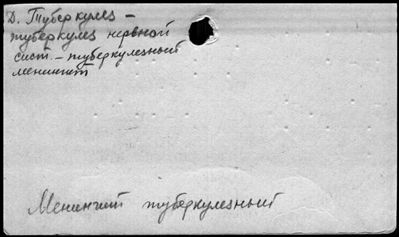 Д. Туберкулез –
туберкулез нервной
сист. – туберкулезный
менингит
Менингит туберкулезный